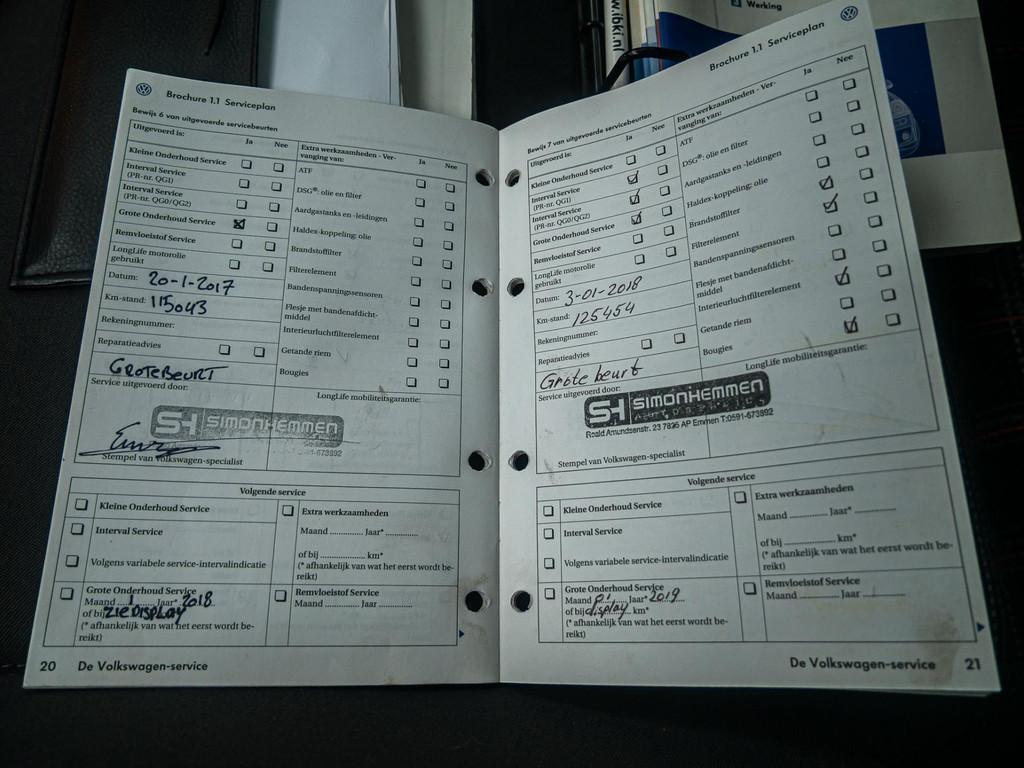 Werking
www.ibki.nl
Brochure 1.1 Serviceplan
Bewijs 6 van uitgevoerde servicebeurten
Uitgevoerd is: Ja Nee
Kleine Onderhoud Service
Interval Service
(PR-nr. QG1)
Interval Service
(PR-nr. QG0/QG2)
Grote Onderhoud Service
Remvloeistof Service
LongLife motorolie
gebruikt
Datum: 20-1-2017
Km-stand: 115043
Rekeningnummer:
Reparatieadvies
GROTE BEURT
Extra werkzaamheden - Ver-
vanging van: Ja Nee
ATF
DSG®: olie en filter
Aardgastanks en -leidingen
Haldex-koppeling: olie
Brandstoffilter
Filterelement
Bandenspanningssensoren
Flesje met bandenafdicht-
middel
Interieurluchtfilterelement
Getande riem
Bougies
Service uitgevoerd door:
LongLife mobiliteitsgarantie:
SH SIMONHEMMEN
Stempel van Volkswagen-specialist
Volgende service
Kleine Onderhoud Service
Interval Service
Volgens variabele service-intervalindicatie
Grote Onderhoud Service
Maand 1 Jaar* 2018
of bij ZIE DISPLAY
(* afhankelijk van wat het eerst wordt be-
reikt)
Extra werkzaamheden
Maand ............. Jaar* .............
of bij ............. km*
(* afhankelijk van wat het eerst wordt be-
reikt)
Remvloeistof Service
Maand ............. Jaar .............
20 De Volkswagen-service
Brochure 1.1 Serviceplan
Bewijs 7 van uitgevoerde servicebeurten
Uitgevoerd is: Ja Nee
Kleine Onderhoud Service
Interval Service
(PR-nr. QG1)
Interval Service
(PR-nr. QG0/QG2)
Grote Onderhoud Service
Remvloeistof Service
LongLife motorolie
gebruikt
Datum: 3-01-2018
Km-stand: 125454
Rekeningnummer:
Reparatieadvies
Grote beurt
Extra werkzaamheden - Ver-
vanging van: Ja Nee
ATF
DSG®: olie en filter
Aardgastanks en -leidingen
Haldex-koppeling: olie
Brandstoffilter
Filterelement
Bandenspanningssensoren
Flesje met bandenafdicht-
middel
Interieurluchtfilterelement
Getande riem
Bougies
Service uitgevoerd door:
LongLife mobiliteitsgarantie:
SH SIMONHEMMEN
Roald Amundsenstr. 23 7825 AP Emmen T:0591-673892
Stempel van Volkswagen-specialist
Volgende service
Kleine Onderhoud Service
Interval Service
Volgens variabele service-intervalindicatie
Grote Onderhoud Service
Maand Jaar* 2019
of bij display km*
(* afhankelijk van wat het eerst wordt be-
reikt)
Extra werkzaamheden
Maand ............. Jaar* .............
of bij ............. km*
(* afhankelijk van wat het eerst wordt be-
reikt)
Remvloeistof Service
Maand ............. Jaar .............
De Volkswagen-service 21